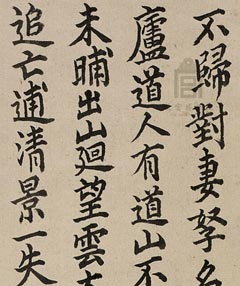 不歸對妻孥名
廬道人有道山不
未晡出山迴望雲
追亡逋清景一失